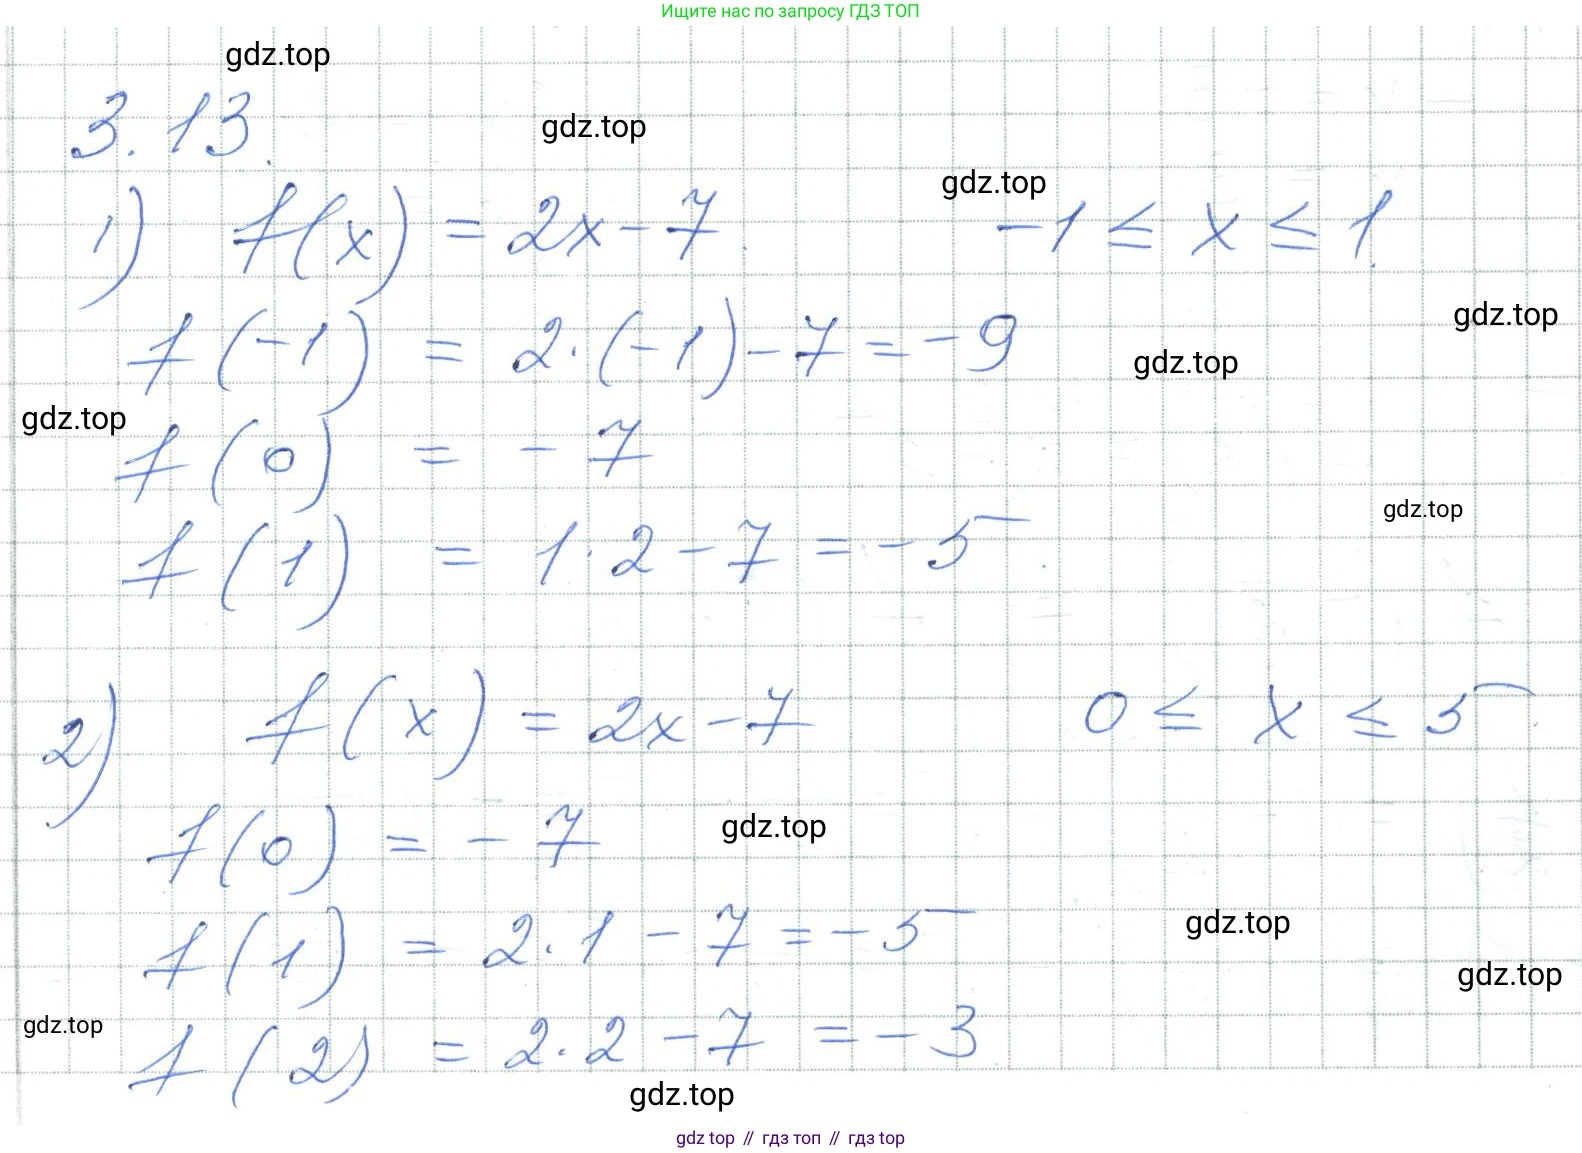 Ищите нас по запросу ГДЗ ТОП
gdz.top
3.13.
gdz.top
gdz.top
1) f(x) = 2x - 7. -1 ≤ x ≤ 1.
gdz.top
f(-1) = 2·(-1) - 7 = -9
gdz.top
gdz.top
f(0) = -7
gdz.top
f(1) = 1·2 - 7 = -5
2) f(x) = 2x - 7 0 ≤ x ≤ 5
f(0) = -7
gdz.top
f(1) = 2·1 - 7 = -5
gdz.top
gdz.top
gdz.top
f(2) = 2·2 - 7 = -3
gdz.top
gdz top // гдз топ // гдз top